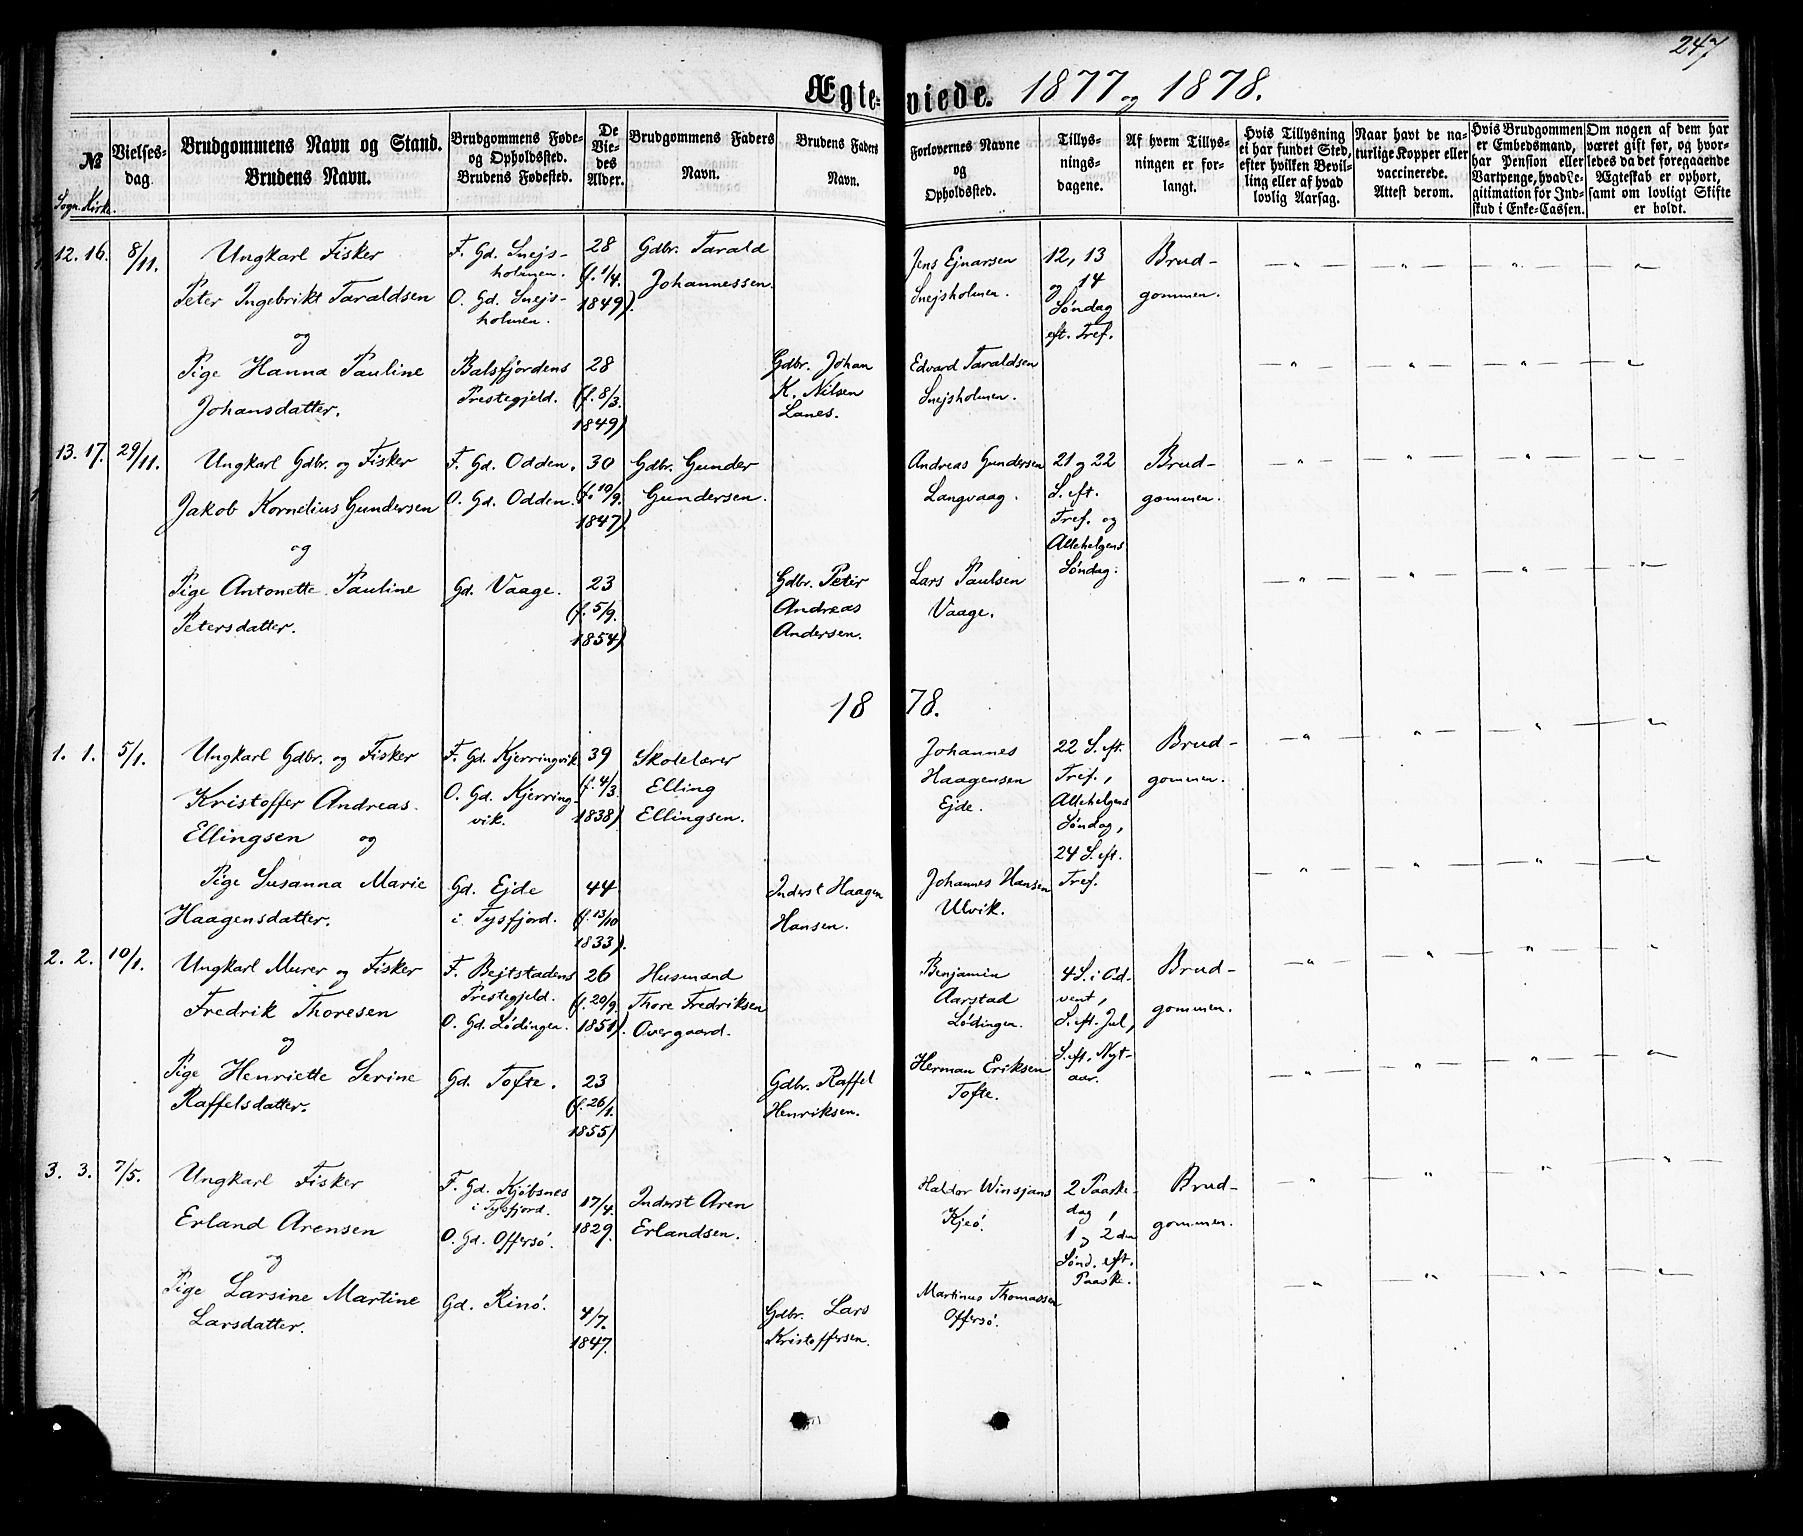 247
Ægteviede. 1877 og 1878.
№
Sogn. Kirke.
Vielses-
dag.
Brudgommens Navn og Stand.
Brudens Navn.
Brudgommens Føde-
og Opholdssted.
Brudens Fødested.
De
Vie-
des
Alder.
Brudgommens Faders
Navn.
Brudens Faders
Navn.
Forlovernes Navne
og
Opholdssted.
Tillys-
nings-
dagene.
Af hvem Tillys-
ningen er for-
langt.
Hvis Tillysning
ei har fundet Sted,
efter hvilken Bevil-
ling eller af hvad
lovlig Aarsag.
Naar havt de na-
turlige Kopper eller
vaccinerede.
Attest derom.
Hvis Brudgommen
er Embedsmand,
har Pension eller
Vartpenge, hvad Le-
gitimation for Ind-
skud i Enke-Cassen.
Om nogen af dem har
været gift før, og hvor-
ledes da det foregaaende
Ægteskab er ophørt,
samt om lovligt Skifte
er holdt.
12. 16. 8/11.
Ungkarl Fisker
Peter Ingebrikt Taraldsen
og
Pige Hanna Pauline
Johansdatter.
F. Gd. Snejs-
holmen.
O. Gd. Snejs-
holmen.
Balsfjordens
Prestegjeld.
28
(f. 1/4.
1849).
28
(f. 8/3.
1849)
Gdbr. Tarald
Johannessen.
Gdbr. Johan
K. Nilsen
Lanes.
Jens Ejnarsen
Snejsholmen.
Edvard Taraldsen
Snejsholmen.
12, 13
og 14
Søndag
eft. Tref.
Brud-
gommen.
13. 17. 29/11.
Ungkarl Gdbr. og Fisker
Jakob Kornelius Gundersen
og
Pige Antonette Pauline
Petersdatter.
F. Gd. Odden.
O. Gd. Odden.
Gd. Vaage.
30
(f. 10/9.
1847).
23
(f. 5/9.
1854).
Gdbr. Gunder
Gundersen.
Gdbr. Peter
Andreas
Andersen.
Andreas Gundersen
Langvaag.
Lars Paulsen
Vaage.
21 og 22
S. eft.
Tref. og
Allehelgens
Søndag.
Brud-
gommen.
1878.
1. 1. 5/1.
Ungkarl Gdbr. og Fisker
Kristoffer Andreas
Ellingsen og
Pige Susanna Marie
Haagensdatter.
F. Gd. Kjerringvik
O. Gd. Kjerring-
vik.
Gd. Ejde
i Tysfjord.
39
(f. 4/3.
1838)
44
(f. 13/10
1833).
Skolelærer
Elling
Ellingsen.
Inderst Haagen
Hansen.
Johannes
Haagensen
Ejde.
Johannes Hansen
Ulvik.
22 S. eft.
Tref.,
Allehelgens
Søndag,
24 S. eft.
Tref.
Brud-
gommen.
2. 2. 10/1.
Ungkarl Murer og Fisker
Fredrik Thoresen
og
Pige Henriette Serine
Raffelsdatter.
F. Bejtstadens
Prestegjeld.
O. Gd. Lødingen.
Gd. Tofte.
26
(f. 20/9.
1851).
23
(f. 26/1.
1855)
Husmand
Thore Fredriksen
Overgaard.
Gdbr. Raffel
Henriksen.
Benjamin
Aarstad
Lødingen.
Herman Eriksen
Tofte.
4 S. i Ad-
vent,
S. eft. Jul,
S. eft. Nyt-
aar.
Brud-
gommen.
3. 3. 7/5.
Ungkarl Fisker
Erland Arensen
og
Pige Larsine Martine
Larsdatter.
F. Gd. Kjøbsnes
i Tysfjord.
O. Gd. Offersø.
Gd. Rinø.
17/4.
1829.
4/7.
1847.
Inderst Aren
Erlandsen.
Gdbr. Lars
Kristoffersen.
Haldor Winsjans
Kjeø.
Martinus Thomassen
Offersø.
2 Paaske-
dag,
1 og 2den
Sønd. eft.
Paaske.
Brud-
gommen.